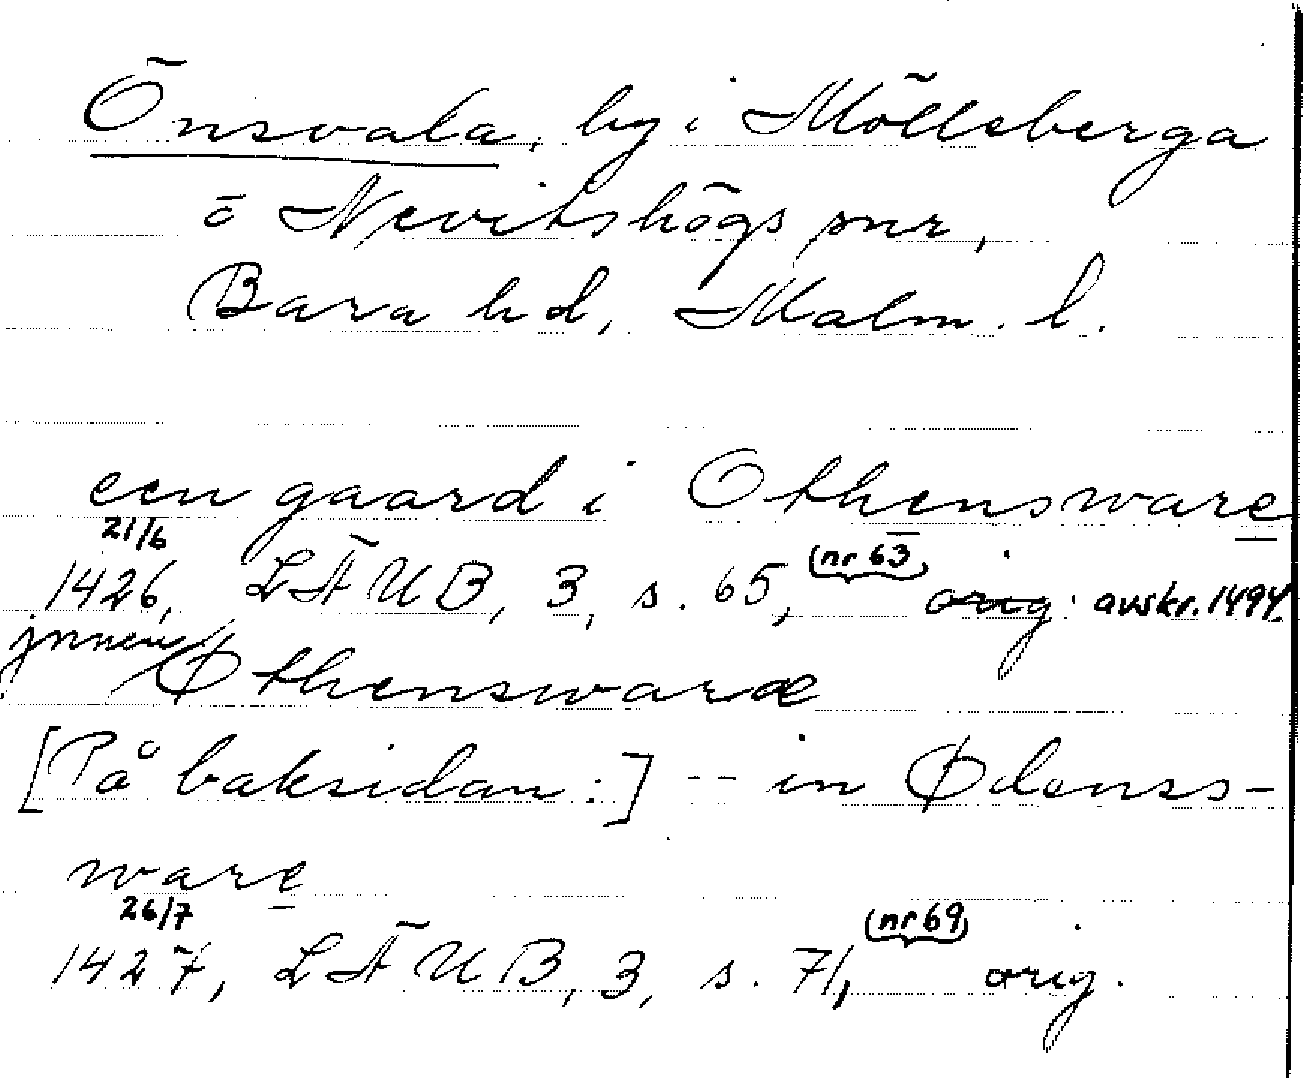 Önsvala, by i Mölleberga
o Nevitshögs snr,
Bara hd, Malm. l.
een gaard i Othensware
21/6 (nr 63)
1426, LÄUB, 3, s. 65, orig. avskr. 1494.
jnnen Øthenswaræ
[På baksidan:] -- in Ødenss-
ware
26/7 (nr 69)
1427, LÄUB, 3, s. 71, orig.